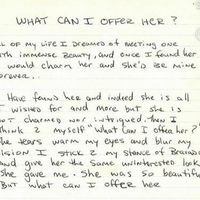 WHAT CAN I OFFER HER?
L OF MY LIFE I DREAMED OF MEETING ONE
TH IMMENSE BEAUTY, AND ONCE I FOUND HER
WOULD CHARM HER AND SHE'D BE MINE
OREVER..
I HAVE FOUND HER AND INDEED SHE IS ALL
WISHED FOR AND MORE BUT SHE IS
OT CHARMED NOR INTRIGUED. THEN I
THINK 2 MYSELF "WHAT CAN I OFFER HER?"
HE TEARS WARM MY EYES AND BLUR MY
ISION I STICK 2 MY STANCE OF BRAVADO
AND GIVE HER THE SAME UNINTERESTED LOOK
SHE GAVE ME. SHE WAS SO BEAUTIFU
BUT WHAT CAN I OFFER HER